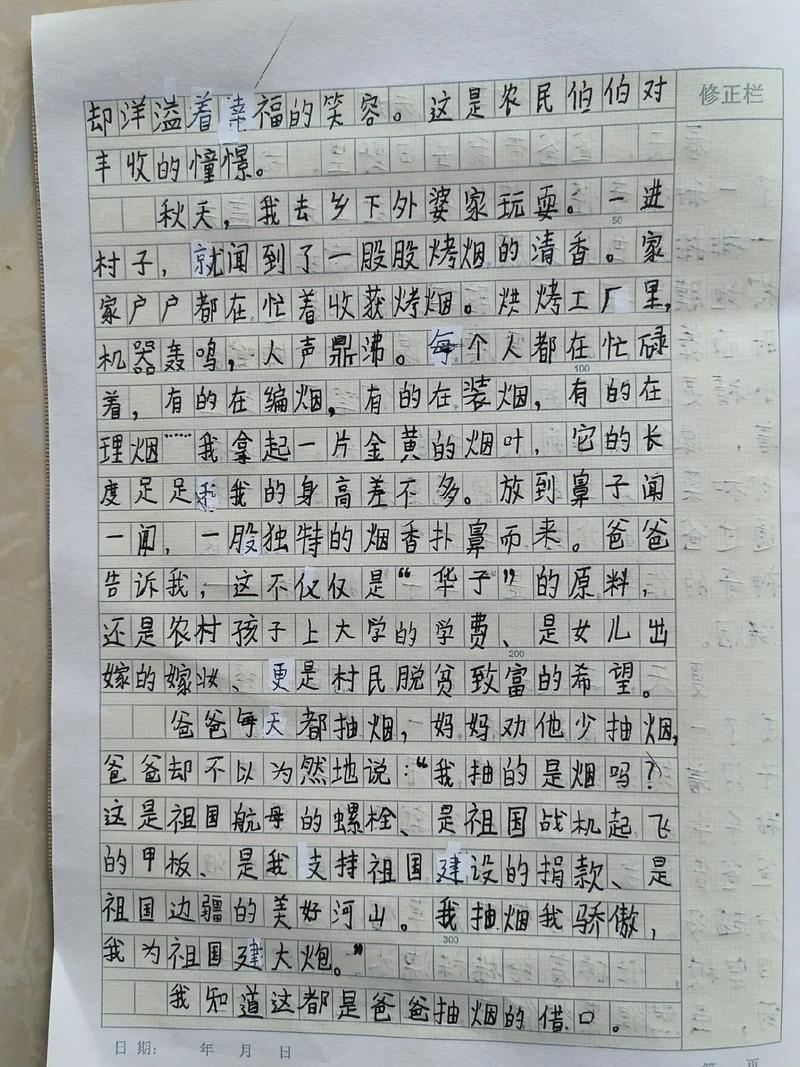 却洋溢着幸福的笑容。这是农民伯伯对
修正栏
丰收的憧憬。
秋天，我去乡下外婆家玩耍。一进
50
村子，就闻到了一股股烤烟的清香。家
家户户都在忙着收获烤烟。烘烤工厂里，
机器轰鸣，人声鼎沸。每个人都在忙碌
100
着，有的在编烟，有的在装烟，有的在
理烟……我拿起一片金黄的烟叶，它的长
度足足和我的身高差不多。放到鼻子闻
一闻，一股独特的烟香扑鼻而来。爸爸
告诉我，这不仅仅是“华子”的原料，
还是农村孩子上大学的学费、是女儿出
200
嫁的嫁妆、更是村民脱贫致富的希望。
爸爸每天都抽烟，妈妈劝他少抽烟，
爸爸却不以为然地说：“我抽的是烟吗？
这是祖国航母的螺栓、是祖国战机起飞
的甲板、是我支持祖国建设的捐款、是
祖国边疆的美好河山。我抽烟我骄傲，
300
我为祖国建大炮。”
我知道这都是爸爸抽烟的借口。
日期： 年 月 日